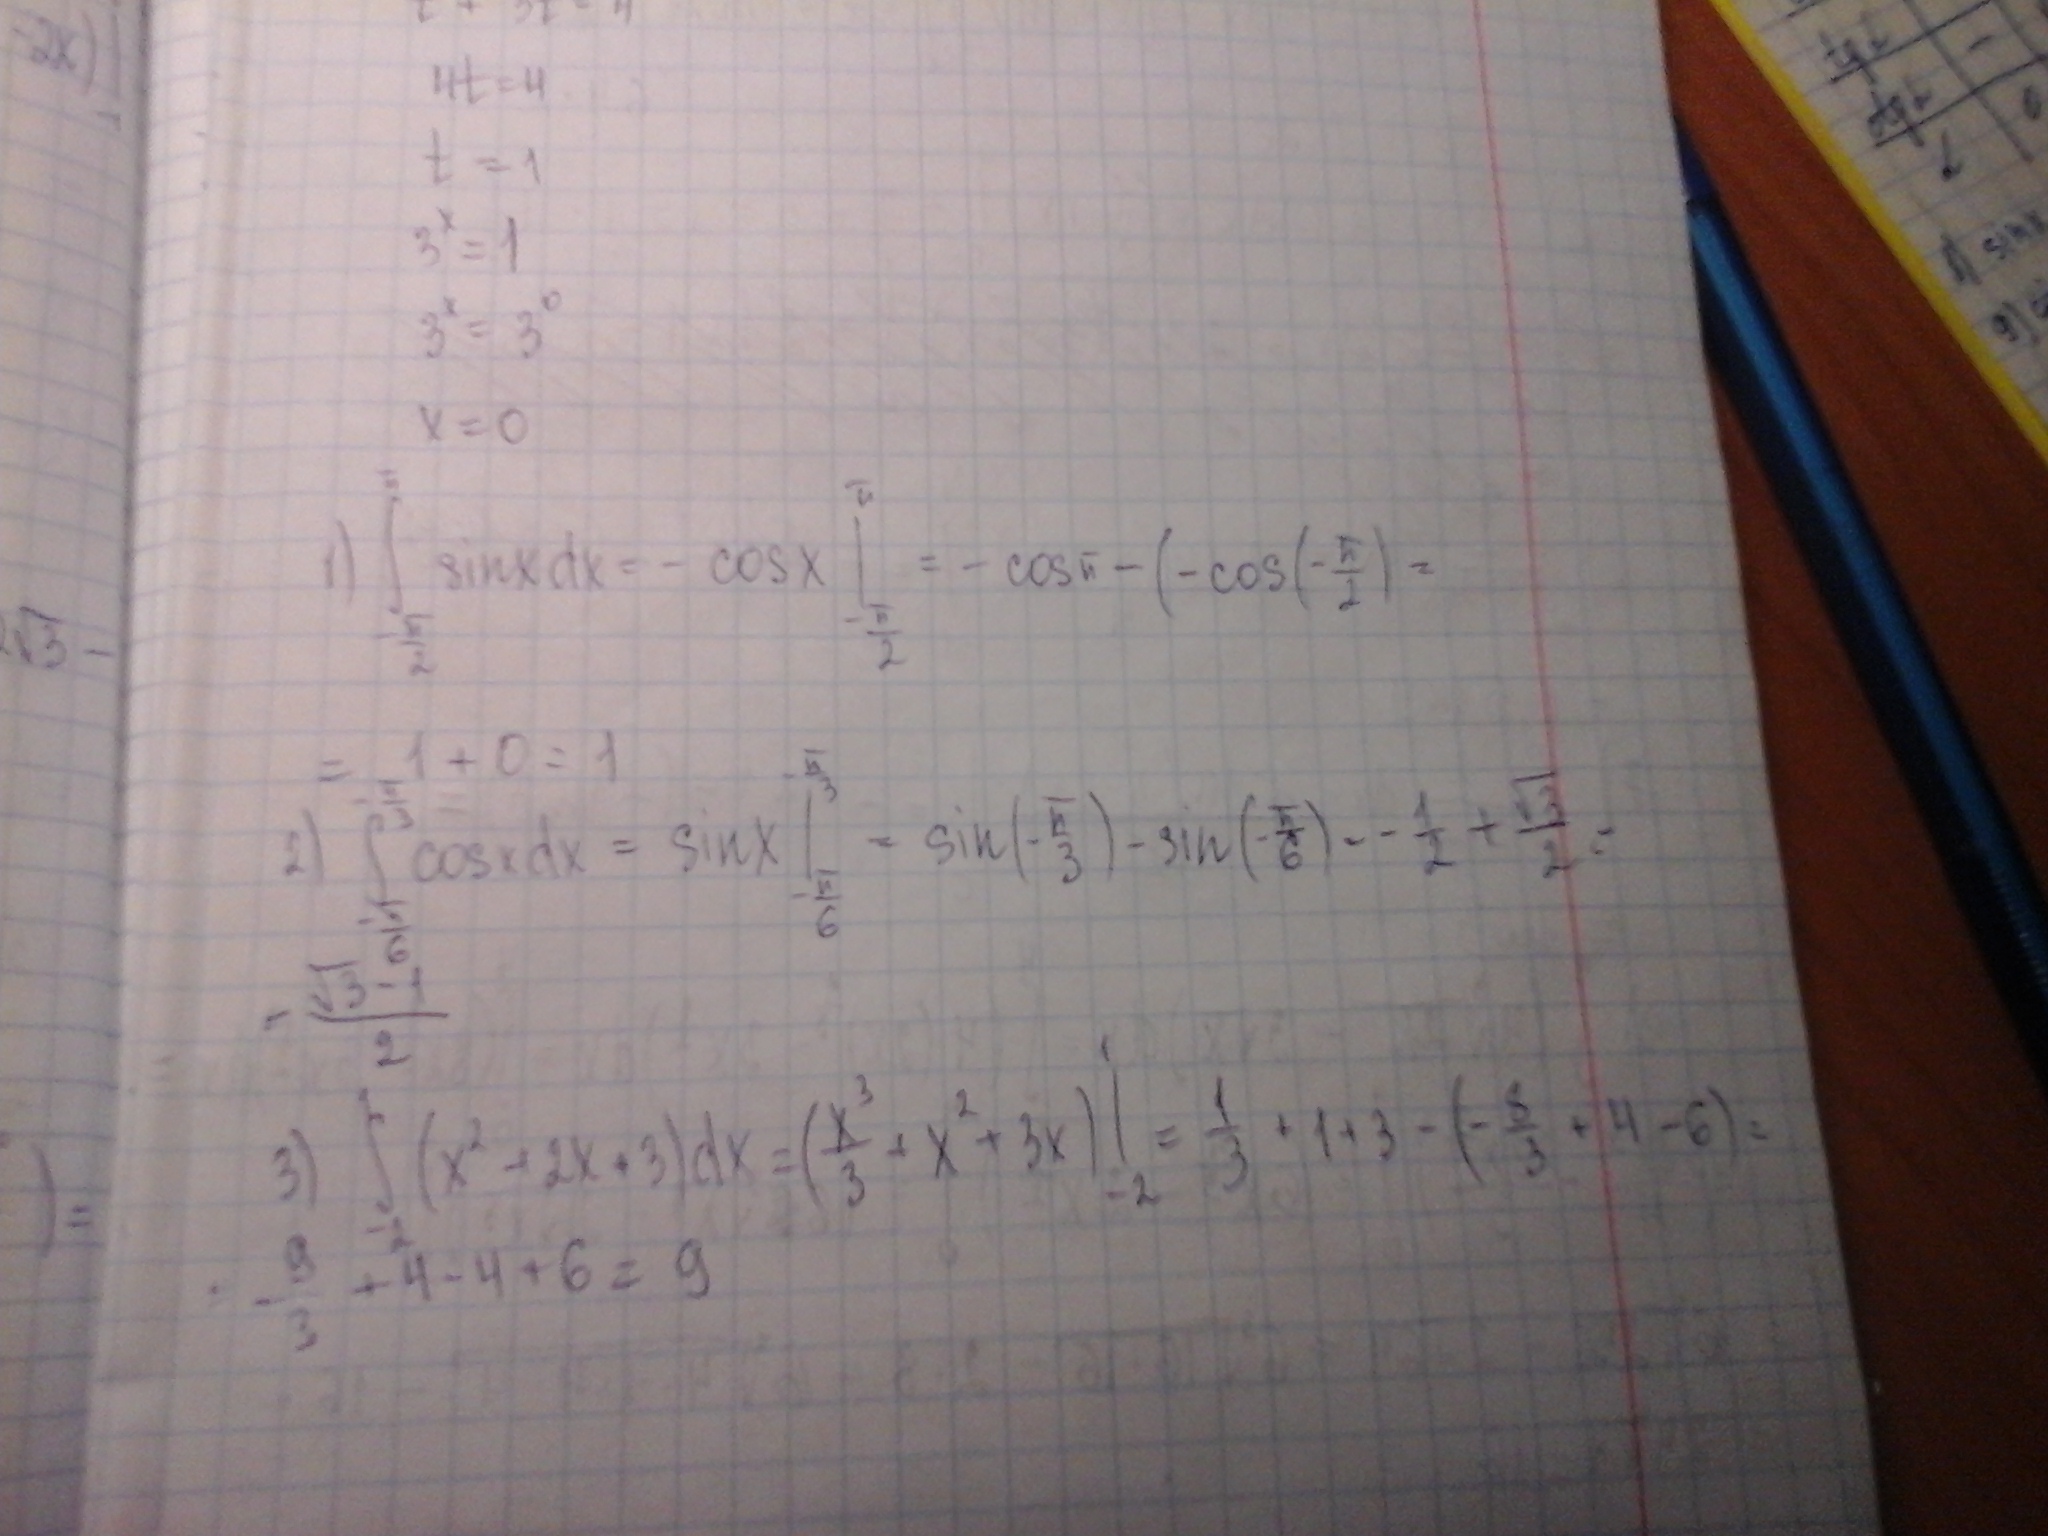 t + 3t = 4
4t = 4
t = 1
3^x = 1
3^x = 3^0
x = 0
1) ∫_{-π/2}^{π} sinxdx = - cosx |_{-π/2}^{π} = - cosπ - (- cos(-π/2) =
= 1 + 0 = 1
2) ∫_{-π/6}^{-π/3} cosxdx = sinx |_{-π/6}^{-π/3} = sin(-π/3) - sin(-π/6) = -1/2 + √3/2 =
= (√3 - 1)/2
3) ∫_{-2}^{1} (x² + 2x + 3)dx = (x³/3 + x² + 3x) |_{-2}^{1} = 1/3 + 1 + 3 - (-8/3 + 4 - 6) =
= 9/3 + 4 - 4 + 6 = 9
2x)
2√3 -
) =
sinx
9)